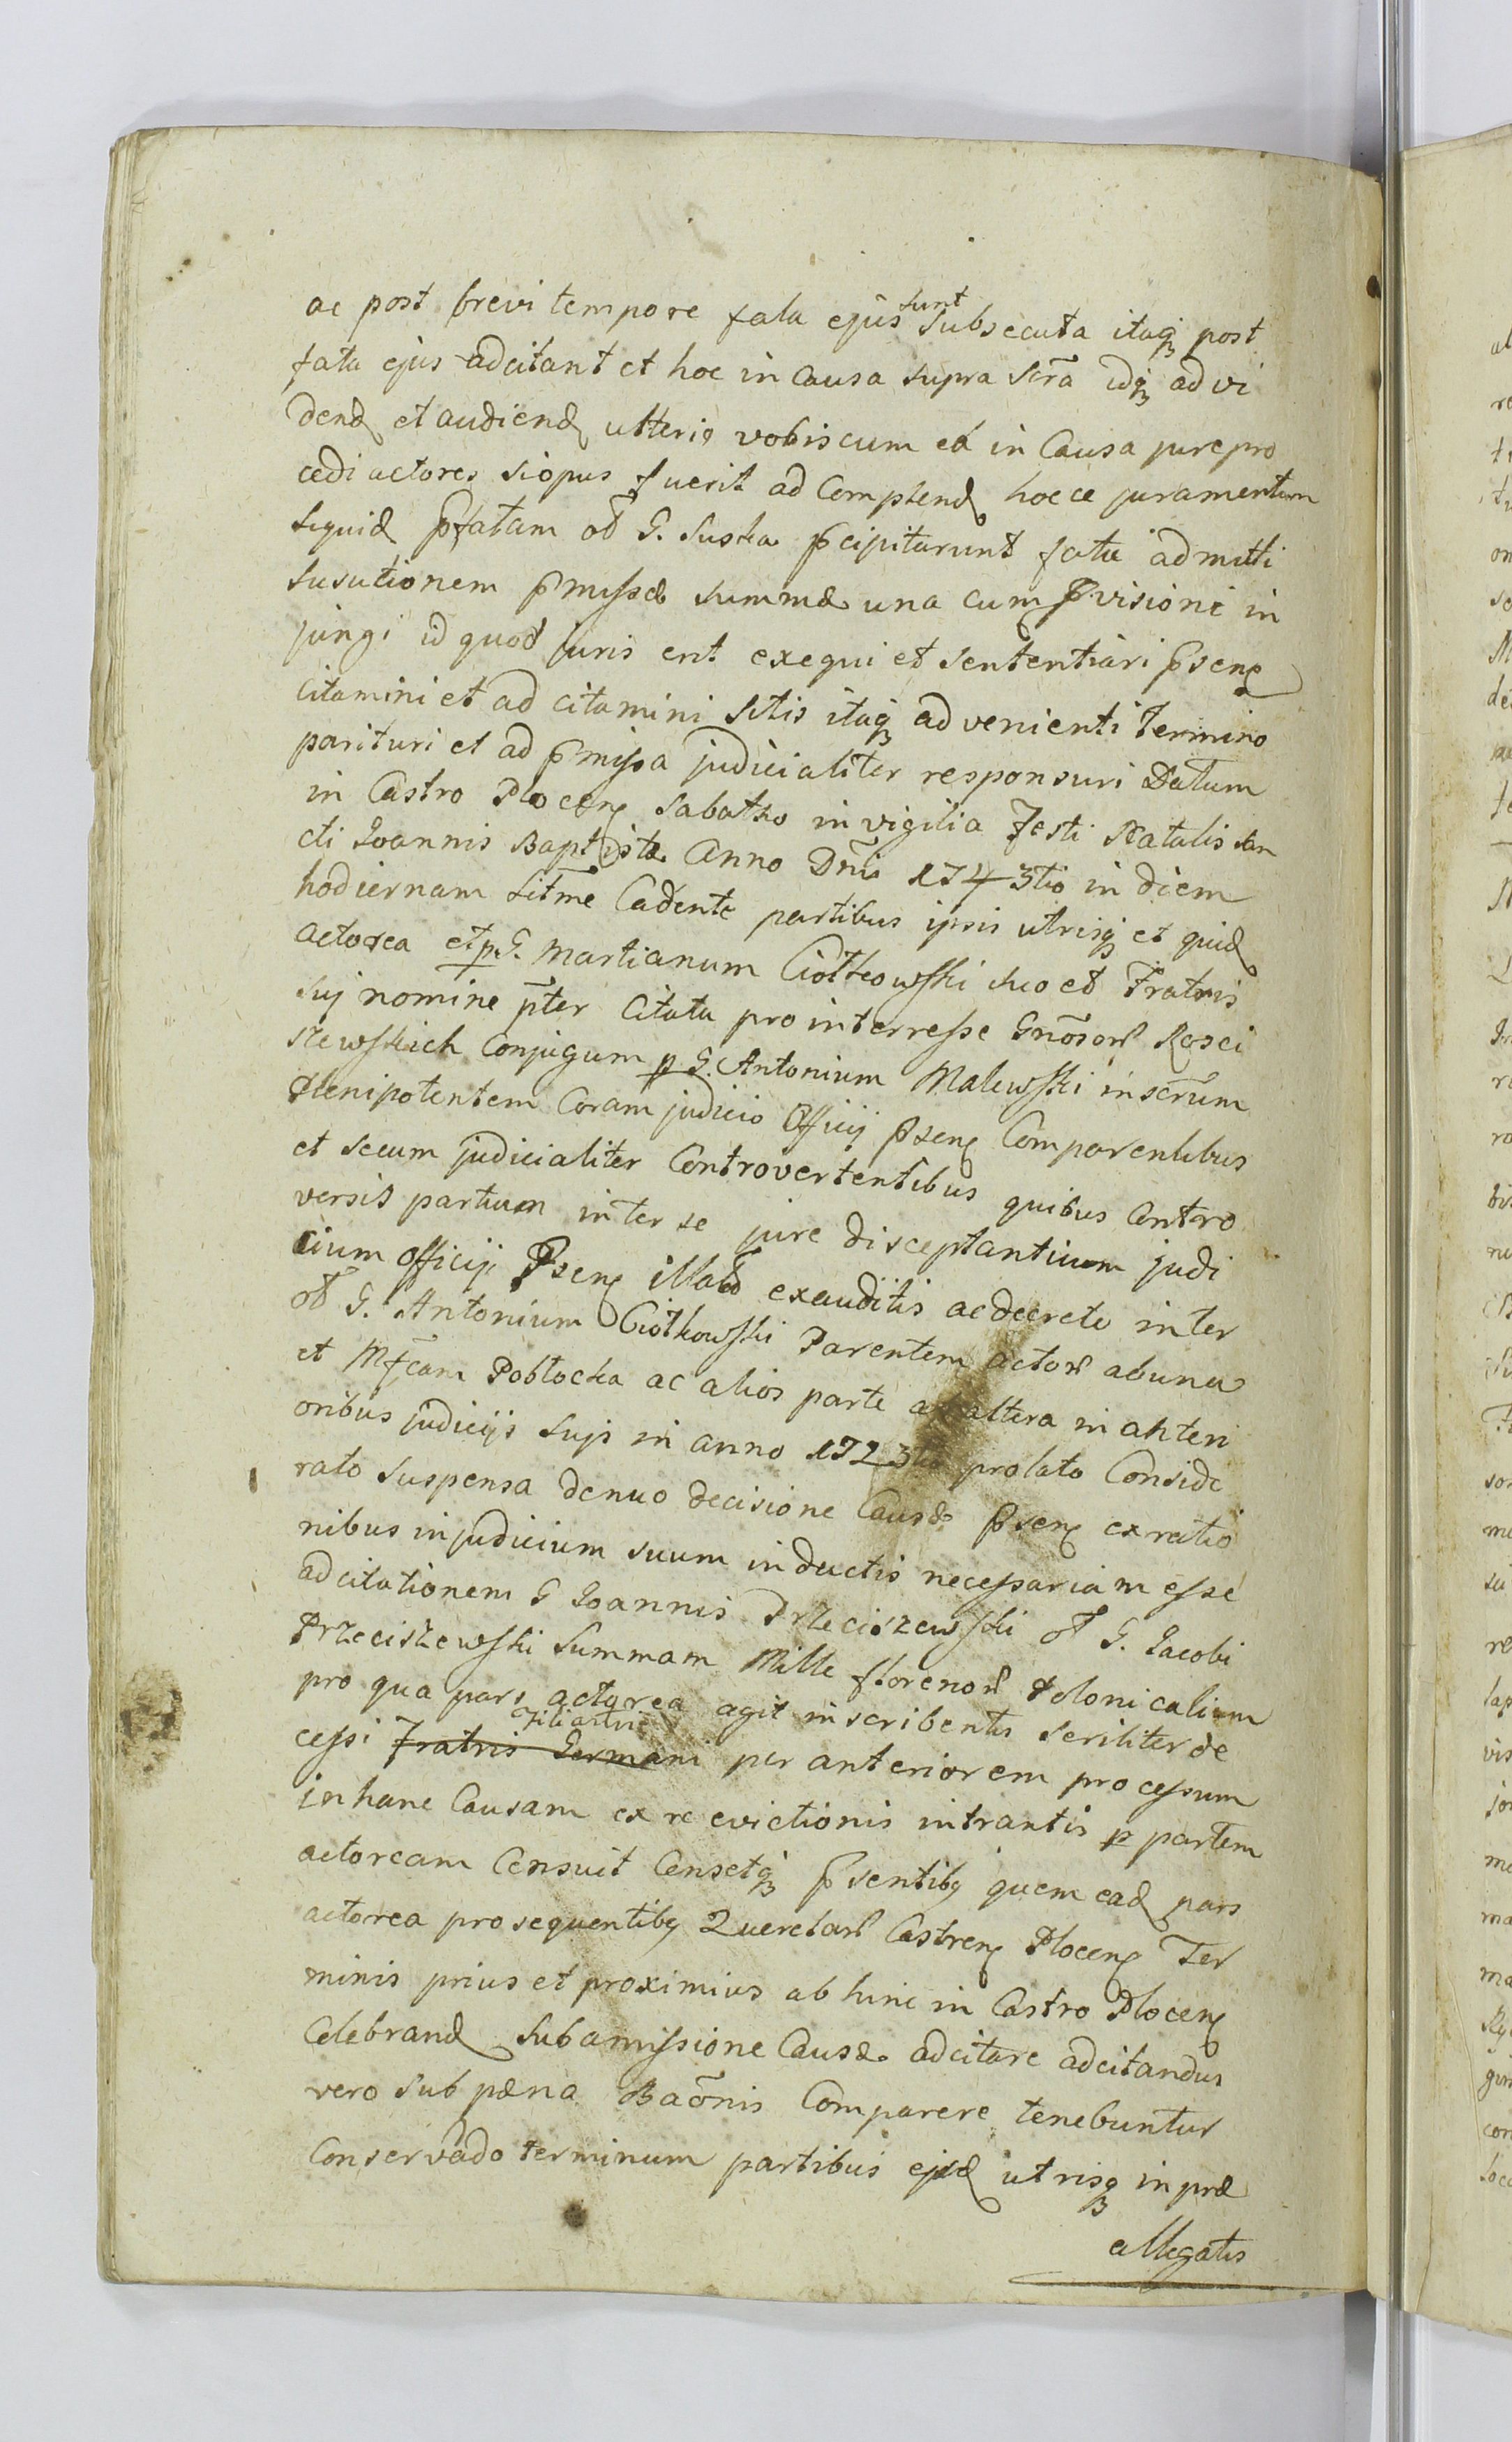 ac post brevi tempore fata ejus sunt subsecuta itaq post
fata ejus adcitant et hoc in Causa supra scra idq ad vi
dend et audiend ulterio vobiscum ea in Causa jure pro
cedi actores si opus fuerit ad Complend hocce juramentum
siquid pfatam od G. Suska pcipitarunt fata admitti
pmissæ summæ una cum pvisione in
jungi id quod juris erit exequi et sententiari psens
Citamini et ad citamini sitis itaq advenienti Termino
parituri et ad pmissa judicialiter responsuri Datum
in Castro Plocens Sabatho in vigilia Festi Natalis San
cti Ioannis Baptistæ Anno Dni 1743tio in diem
hodiernam litme Cadente partibus ipsis utrisq et quid
actorea et p. G. Martianum Ciołkowski suo et Fratris
sui nomine pter Citata pro interresse Gnosor Rosci
szewskich Conjugum p G. Antonium Malewski inscrum
Plenipotentem Coram judicio Officij psens Comparentibus
et secum judicialiter Controvertentibus quibus Contro
versis partium inter se jure disceptantium judi
cium Officij Psens exauditis ac decreto inter
od G. Antonium Ciołkowski Parentem actor ab una
et Mfcam Pobłocka ac alios parte ab altera in anteri
oribus judicijs sujs in anno 1723tio prolato Conside
rato suspensa denuo decisione Causæ psens ex ratio
nibus in judicium suum inductis necessariam esse
adcitationem G Ioannis Przeciszewski od G. Iacobi
Przeciszewski Summam Mille florenor Polonicalium
pro qua pars actorea agit inscribentis seriliter de
cessi Fratris Germani per anteriorem processum
in hanc Causam ex re evictionis intrantis p partem
actoream Censuit Censetq psentiby quem ead pars
actorea prosequentiby Querelar Castrens Plocens Ter
minis prius et proximius ab hinc in Castro Plocens
Celebrand sub amissione Causæ adcitare adcitandus
vero sub pæna Baonis Comparere tenebuntur
Conservado terminum partibus ejsd utrisq in præ
allegatis